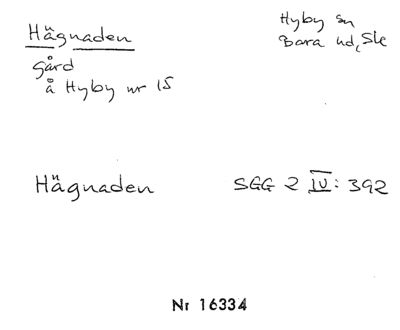 Hägnaden
gård
å Hyby nr 15
Hyby sn
Bara hd, Sk
Hägnaden
SGG 2 IV: 392
Nr 16334